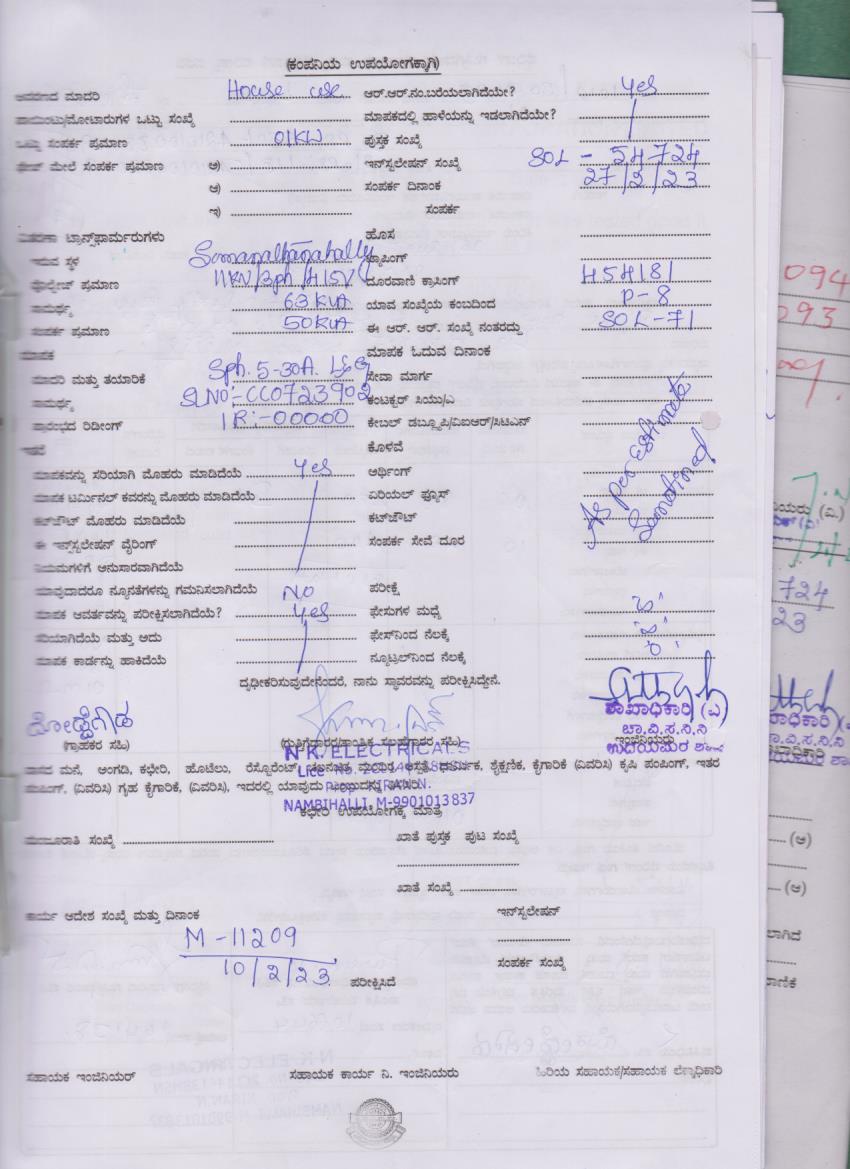 (ಕಂಪನಿಯ ಉಪಯೋಗಕ್ಕಾಗಿ)
ಮಾದರಿ House use ಆರ್.ಆರ್.ನಂ.ಬರೆಯಲಾಗಿದೆಯೇ? Yes
ಒಟ್ಟು ಸಂಖ್ಯೆ ಮಾಪಕದಲ್ಲಿ ಹಾಳೆಯನ್ನು ಇಡಲಾಗಿದೆಯೇ?
ಒಟ್ಟು ಸಂಪರ್ಕ ಪ್ರಮಾಣ 01KW ಪುಸ್ತಕ ಸಂಖ್ಯೆ
ಮೇಲೆ ಸಂಪರ್ಕ ಪ್ರಮಾಣ ಅ) ಇನ್‌ಸ್ಟಲೇಷನ್ ಸಂಖ್ಯೆ SOL - 54724
ಆ) ಸಂಪರ್ಕ ದಿನಾಂಕ 27/2/23
ಇ) ಸಂಪರ್ಕ
ಟ್ರಾನ್ಸ್‌ಫಾರ್ಮರುಗಳು ಹೊಸ
ಇರುವ ಸ್ಥಳ Somanathanahally ಟ್ಯಾಪಿಂಗ್
ಪ್ರಮಾಣ 11KV/3ph/415V ದೂರವಾಣಿ ಕ್ರಾಸಿಂಗ್ 454181
ಸಾಮರ್ಥ್ಯ 63 KVA ಯಾವ ಸಂಖ್ಯೆಯ ಕಂಬದಿಂದ P-8
ಸಂಪರ್ಕ ಪ್ರಮಾಣ 50KVA ಈ ಆರ್. ಆರ್. ಸಂಖ್ಯೆ ನಂತರದ್ದು SOL-71
ಮಾಪಕ ಮಾಪಕ ಓದುವ ದಿನಾಂಕ
ಮಾದರಿ ಮತ್ತು ತಯಾರಿಕೆ Sph. 5-30A. L&G ಸೇವಾ ಮಾರ್ಗ
ಸಾಮರ್ಥ್ಯ SLNO:-CC0723902 ಕಂಟಕ್ಟರ್ ಸಿಯು/ಎ
ಪ್ರಾರಂಭದ ರಿಡೀಂಗ್ IR:-00000 ಕೇಬಲ್ ಡಬ್ಲ್ಯೂಪಿ/ವಿಐಆರ್/ಸಿಟಿಎಸ್
ಇತರೆ ಕೊಳವೆ
ಮಾಪಕವನ್ನು ಸರಿಯಾಗಿ ಮೊಹರು ಮಾಡಿದೆಯೆ Yes ಆರ್ಥಿಂಗ್ As per Estimate Sanctined
ಮಾಪಕ ಟರ್ಮಿನಲ್ ಕವರನ್ನು ಮೊಹರು ಮಾಡಿದೆಯೆ ಏರಿಯಲ್ ಫ್ಯೂಸ್
ಕಟ್‌ಔಟ್ ಮೊಹರು ಮಾಡಿದೆಯೆ ಕಟ್‌ಔಟ್
ಈ ಇನ್‌ಸ್ಟಲೇಷನ್ ವೈರಿಂಗ್ ಸಂಪರ್ಕ ಸೇವೆ ದೂರ
ನಿಯಮಗಳಿಗೆ ಅನುಸಾರವಾಗಿದೆಯೆ
ಯಾವುದಾದರೂ ನ್ಯೂನತೆಗಳನ್ನು ಗಮನಿಸಲಾಗಿದೆಯೆ NO ಪರೀಕ್ಷೆ
ಮಾಪಕ ಆವರ್ತವನ್ನು ಪರೀಕ್ಷಿಸಲಾಗಿದೆಯೆ? Yes ಫೇಸುಗಳ ಮಧ್ಯೆ
ಸರಿಯಾಗಿದೆಯೆ ಮತ್ತು ಅದು ಫೇಸ್‌ನಿಂದ ನೆಲಕ್ಕೆ
ಮಾಪಕ ಕಾರ್ಡನ್ನು ಹಾಕಿದೆಯೆ ನ್ಯೂಟ್ರಲ್‌ನಿಂದ ನೆಲಕ್ಕೆ
ದೃಢೀಕರಿಸುವುದೇನೆಂದರೆ, ನಾನು ಸ್ಥಾವರವನ್ನು ಪರೀಕ್ಷಿಸಿದ್ದೇನೆ.
ಶಾಖಾಧಿಕಾರಿ (ವಿ)
(ಗ್ರಾಹಕರ ಸಹಿ) ಇಂಜಿನಿಯರು
ಬಾ.ವಿ.ಸ.ನಿ.ನಿ
N.K. ELECTRICALS
ಮನೆ, ಅಂಗಡಿ, ಕಛೇರಿ, ಹೊಟೇಲು, ರೆಸ್ಟೊರೆಂಟ್ ಶೈಕ್ಷಣಿಕ, ಕೈಗಾರಿಕೆ (ವಿವರಿಸಿ) ಕೃಷಿ ಪಂಪಿಂಗ್, ಇತರ
ಪಂಪಿಂಗ್, (ವಿವರಿಸಿ) ಗೃಹ ಕೈಗಾರಿಕೆ, (ವಿವರಿಸಿ), ಇದರಲ್ಲಿ ಯಾವುದು KIRAN.N.
NAMBIHALLI, M-9901013837
ಕಛೇರಿ ಉಪಯೋಗಕ್ಕೆ ಮಾತ್ರ
ಮಂಜೂರಾತಿ ಸಂಖ್ಯೆ ಖಾತೆ ಪುಸ್ತಕ ಪುಟ ಸಂಖ್ಯೆ
ಖಾತೆ ಸಂಖ್ಯೆ
ಕಾರ್ಯ ಆದೇಶ ಸಂಖ್ಯೆ ಮತ್ತು ದಿನಾಂಕ ಇನ್‌ಸ್ಟಲೇಷನ್
M-11209
10/2/23 ಪರೀಕ್ಷಿಸಿದೆ ಸಂಪರ್ಕ ಸಂಖ್ಯೆ
ಸಹಾಯಕ ಇಂಜಿನಿಯರ್ ಸಹಾಯಕ ಕಾರ್ಯ ನಿ. ಇಂಜಿನಿಯರು ಹಿರಿಯ ಸಹಾಯಕ/ಸಹಾಯಕ ಲೆಕ್ಕಾಧಿಕಾರಿ
094
093
724
23
(ಅ)
(ಆ)